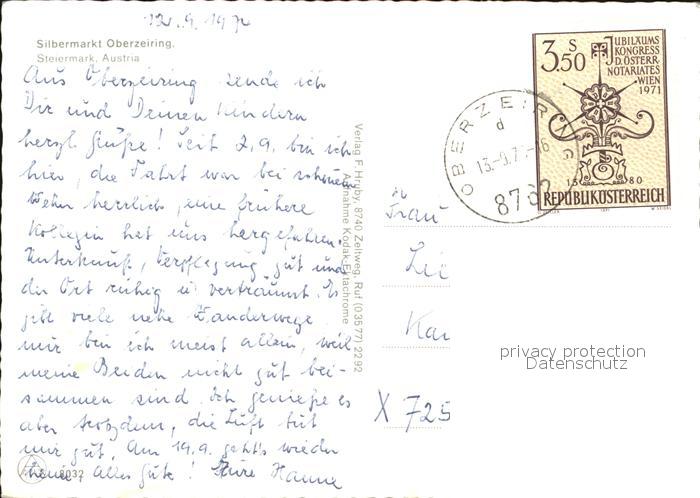 12.9.197
Silbermarkt Oberzeiring.
Steiermark, Austria
Aus Oberzeiring sende ich
Dir und Deinen Kindern
herzl. Grüße! Seit 2.9. bin ich
hier, die Fahrt war bei schönem
herrlich, eine frühere
Kollegin hat uns hergefahren.
Unterkunft, Verpflegung gut und
der Ort ruhig u. verträumt. Es
gibt viele nette Wanderwege
nur bin ich meist allein, weil
meine Beiden nicht gut bei-
sammen sind. Ich genieße es
aber trotzdem, die Luft tut
mir gut. Am 19.9. geht's wieder
heim, Alles Gute! Eure Hanne
6032
Verlag F. Hruby, 8740 Zeltweg, Ruf (03577) 2292
Aufnahme Kodak-Ektachrome
OBERZEIRING
d
13.-9.7-16
8762
S
3.50
JUBILÄUMS
KONGRESS
D. ÖSTERR.
NOTARIATES
WIEN
1971
15 80
REPUBLIK ÖSTERREICH
Frau
Kar
X 725
privacy protection
Datenschutz